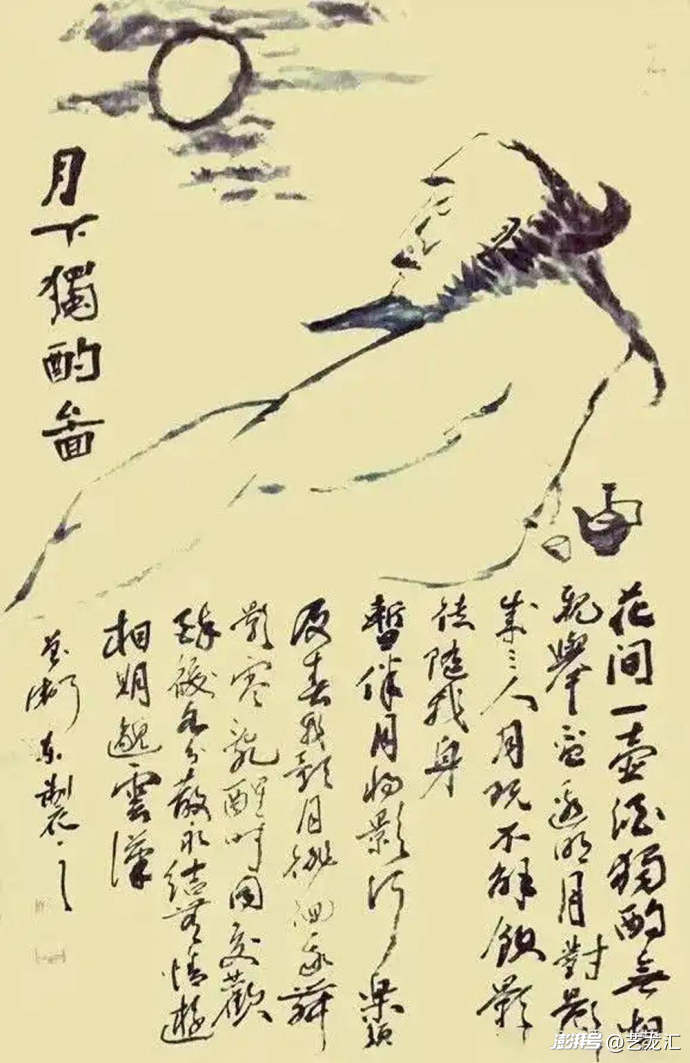 月下獨酌圖
花间一壶酒独酌無相
親舉盃邀明月對影
成三人月既不解飲影
徒隨我身
暫伴月將影行樂須
及春我歌月徘徊我舞
影零亂醒時同交歡
醉後各分散永結無情遊
相期邈雲漢
澎湃号@艺龙汇